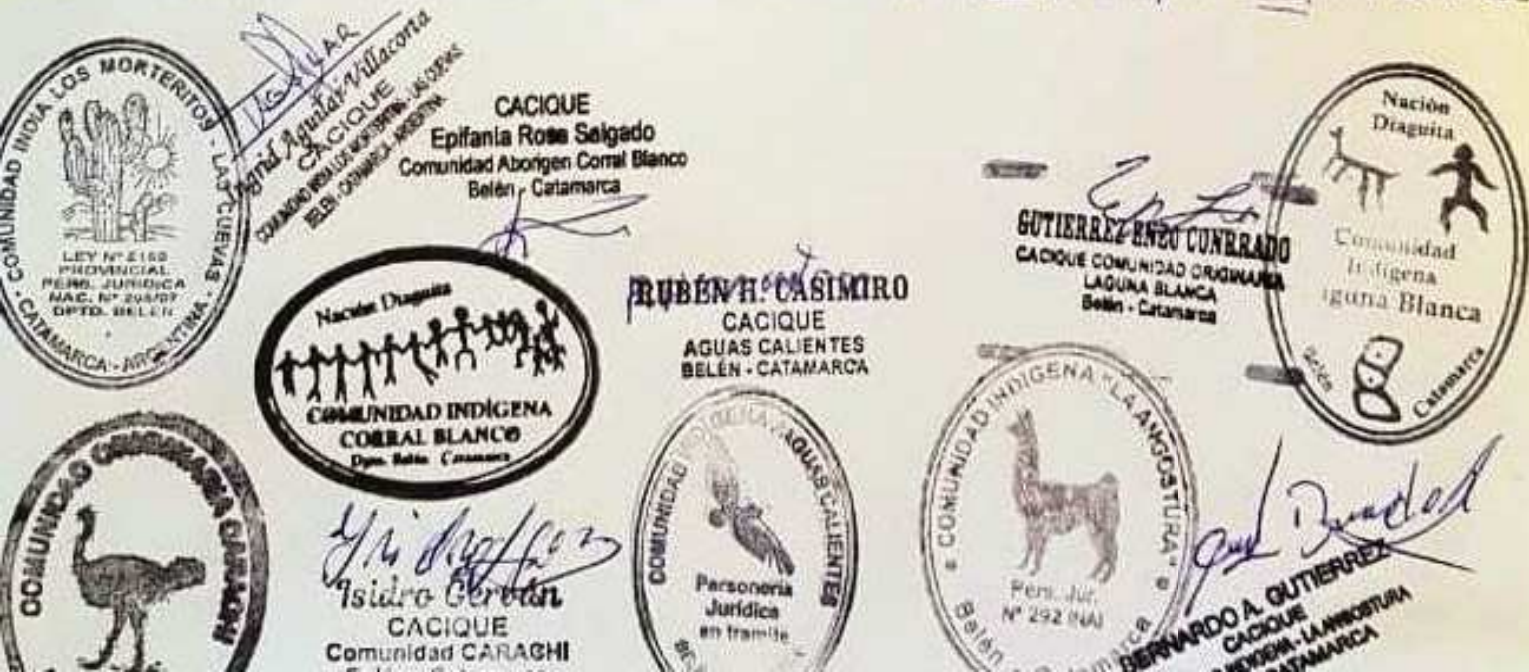 COMUNIDAD INDIA LOS MORTERITOS - LAS CUEVAS - CATAMARCA - ARGENTINA
LEY Nº
PROVINCIAL
PERS. JURIDICA
NAC. Nº
DPTO. BELEN
Ingrid Aguilar Villacorta
CACIQUE
COMUNIDAD INDIA LOS MORTERITOS - LAS CUEVAS
BELEN - CATAMARCA - ARGENTINA
CACIQUE
Epifania Rosa Salgado
Comunidad Aborigen Corral Blanco
Belén - Catamarca
Nación Diaguita
COMUNIDAD INDÍGENA
CORRAL BLANCO
Dpto. Belén Catamarca
RUBÉN H. CASIMIRO
CACIQUE
AGUAS CALIENTES
BELÉN - CATAMARCA
GUTIERREZ ENZO CONRRADO
CACIQUE COMUNIDAD ORIGINARIA
LAGUNA BLANCA
Belén - Catamarca
Nación
Diaguita
Comunidad
Indígena
aguna Blanca
Belén Catamarca
COMUNIDAD ORIGINARIA CARACHI
Isidro Gervan
CACIQUE
Comunidad CARACHI
COMUNIDAD INDIGENA AGUAS CALIENTES
Personería
Jurídica
en tramite
COMUNIDAD INDIGENA "LA ANGOSTURA"
Pers. Jur.
Nº 292 INAI
Belén Catamarca
BERNARDO A. GUTIERREZ
CACIQUE
INDIGENA - LA ANGOSTURA
CATAMARCA